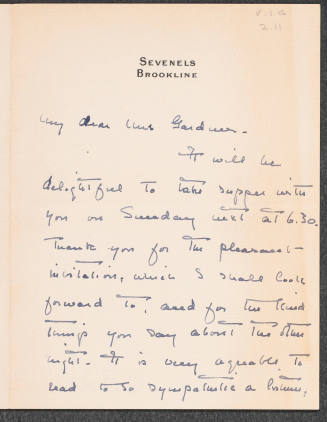 V.I.G
2.11
SEVENELS
BROOKLINE
My dear Mrs Gardner.
It will be
delightful to take supper with
you on Sunday next at 6.30.
Thank you for the pleasant
invitation, which I shall look
forward to, and for the kind
things you say about the other
night. It is very agreeable to
read to so sympathetic a listener,